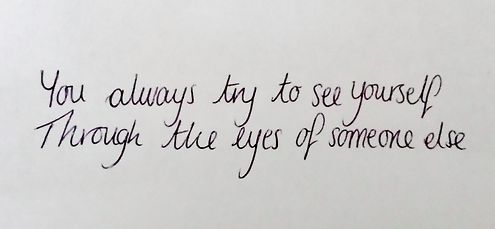 You always try to see yourself
Through the eyes of someone else